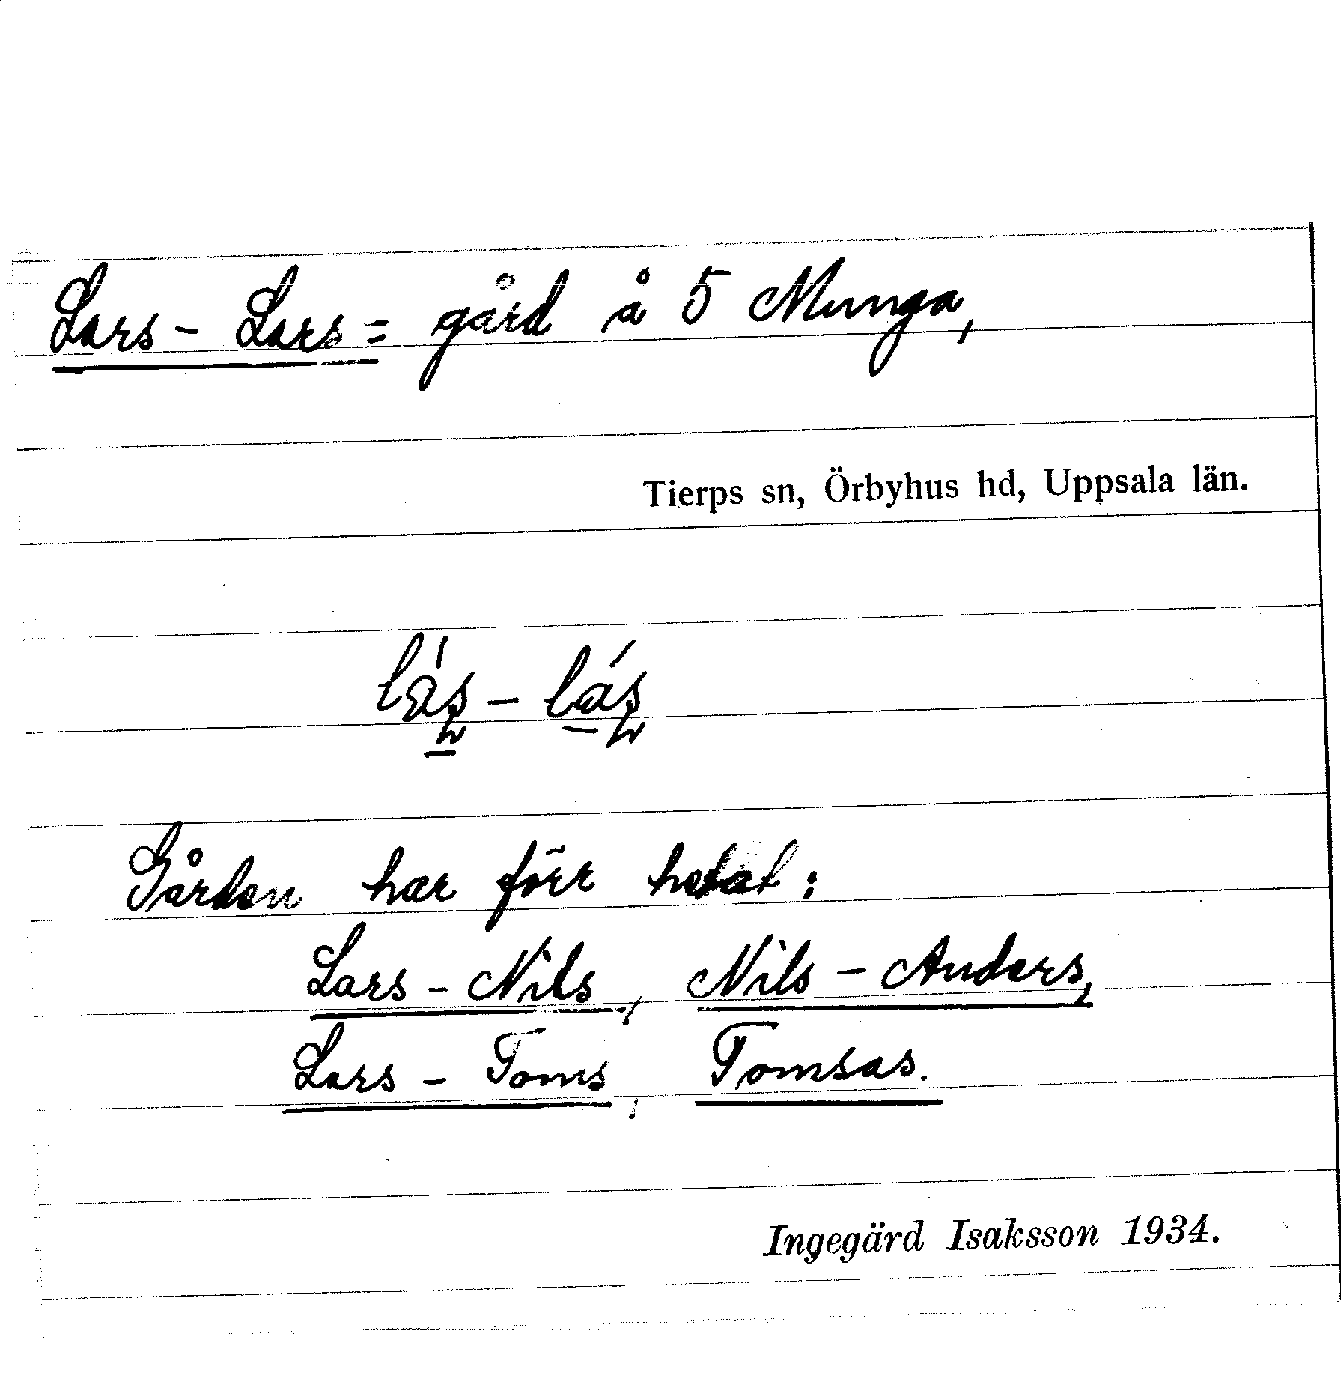 Lars - Lars = gård å 5 Munga,
Tierps sn, Örbyhus hd, Uppsala län.
Gården har förr hetat:
Lars - Nils, Nils - Anders,
Lars - Toms, Tomsas.
Ingegärd Isaksson 1934.